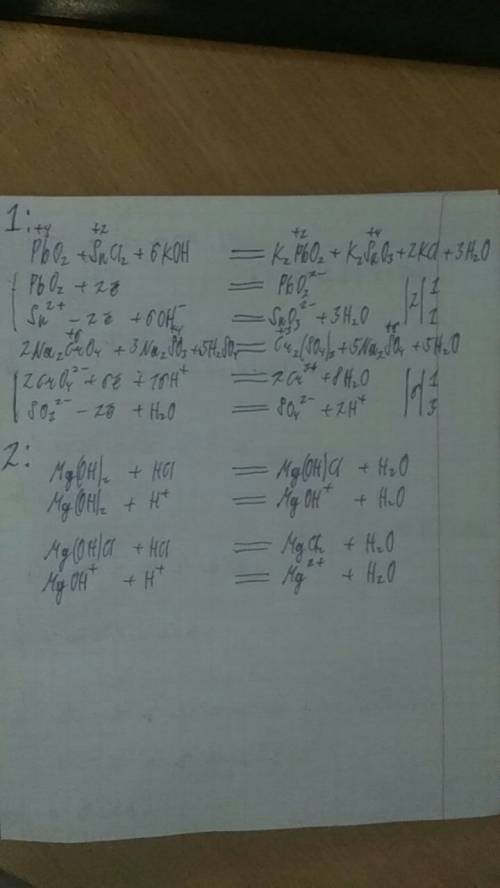 1:
+4 +2 +2 +4
PbO₂ + SnCl₂ + 6KOH = K₂PbO₂ + K₂SnO₃ + 2KCl + 3H₂O
PbO₂ + 2ē = PbO₂²⁻ |2| 1
Sn²⁺ - 2ē + 6OH⁻ = SnO₃²⁻ + 3H₂O | | 1
+6 +4 +3 +6
2Na₂CrO₄ + 3Na₂SO₃ + 5H₂SO₄ = Cr₂(SO₄)₃ + 5Na₂SO₄ + 5H₂O
2CrO₄²⁻ + 6ē + 16H⁺ = 2Cr³⁺ + 8H₂O |6| 1
SO₃²⁻ - 2ē + H₂O = SO₄²⁻ + 2H⁺ | | 3
2:
Mg(OH)₂ + HCl = Mg(OH)Cl + H₂O
Mg(OH)₂ + H⁺ = MgOH⁺ + H₂O
Mg(OH)Cl + HCl = MgCl₂ + H₂O
MgOH⁺ + H⁺ = Mg²⁺ + H₂O